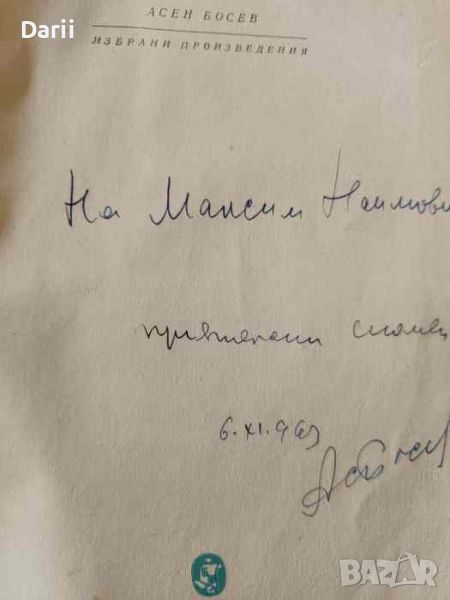 Darii
АСЕН БОСЕВ
ИЗБРАНИ ПРОИЗВЕДЕНИЯ
На Максим Наимови
приятелски спомен
6.XI.963
АсБосев
BAZAR
bg